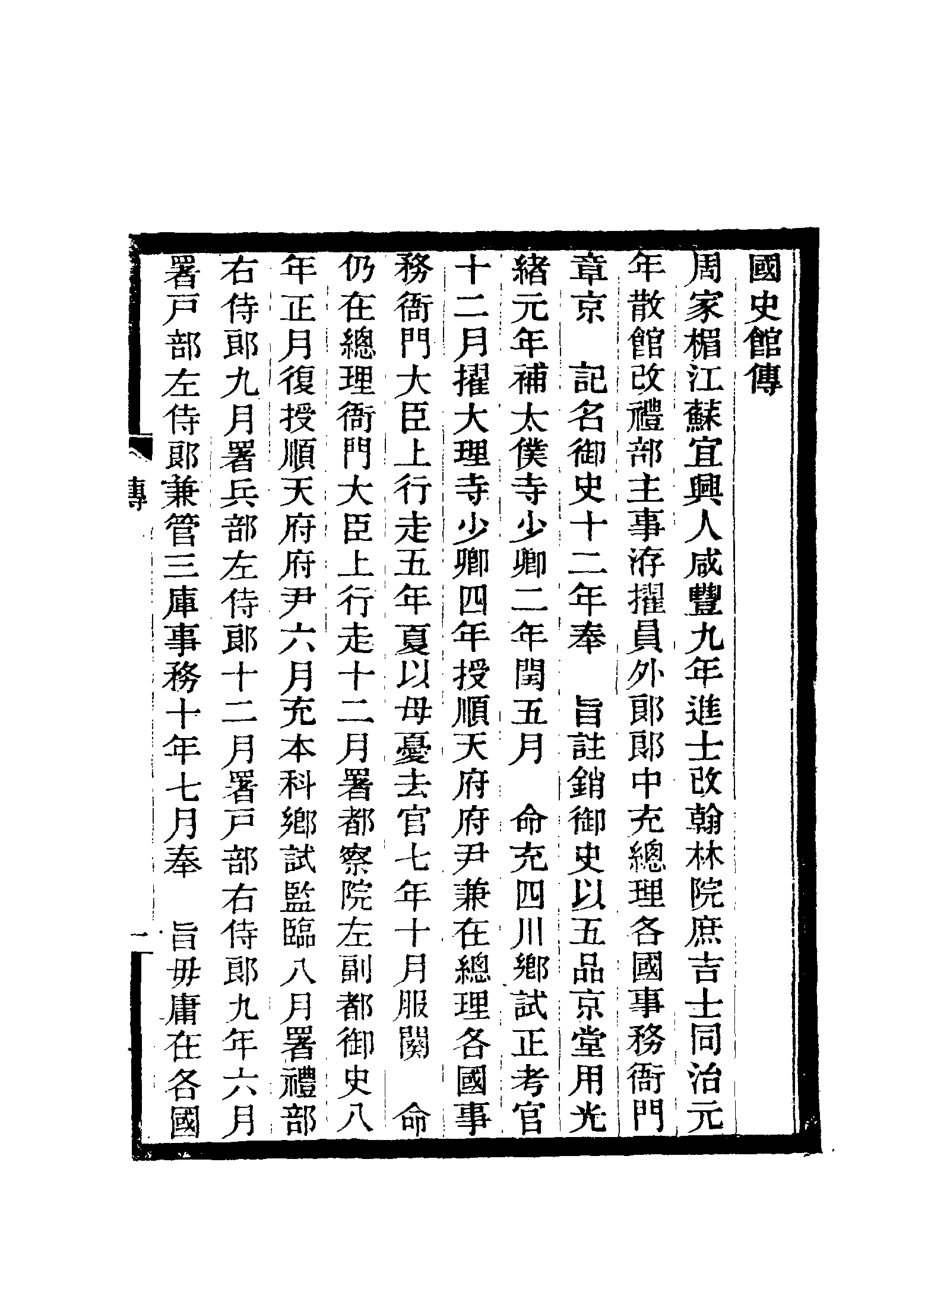 國史館傳
周家楣江蘇宜興人咸豐九年進士改翰林院庶吉士同治元
年散館改禮部主事洊擢員外郎郎中充總理各國事務衙門
章京　記名御史十二年奉　旨註銷御史以五品京堂用光
緒元年補太僕寺少卿二年閏五月　命充四川鄉試正考官
十二月擢大理寺少卿四年授順天府府尹兼在總理各國事
務衙門大臣上行走五年夏以母憂去官七年十月服闋　命
仍在總理衙門大臣上行走十二月署都察院左副都御史八
年正月復授順天府府尹六月充本科鄉試監臨八月署禮部
右侍郎九月署兵部左侍郎十二月署戸部右侍郎九年六月
署戸部左侍郎兼管三庫事務十年七月奉　旨毋庸在各國
傳
一